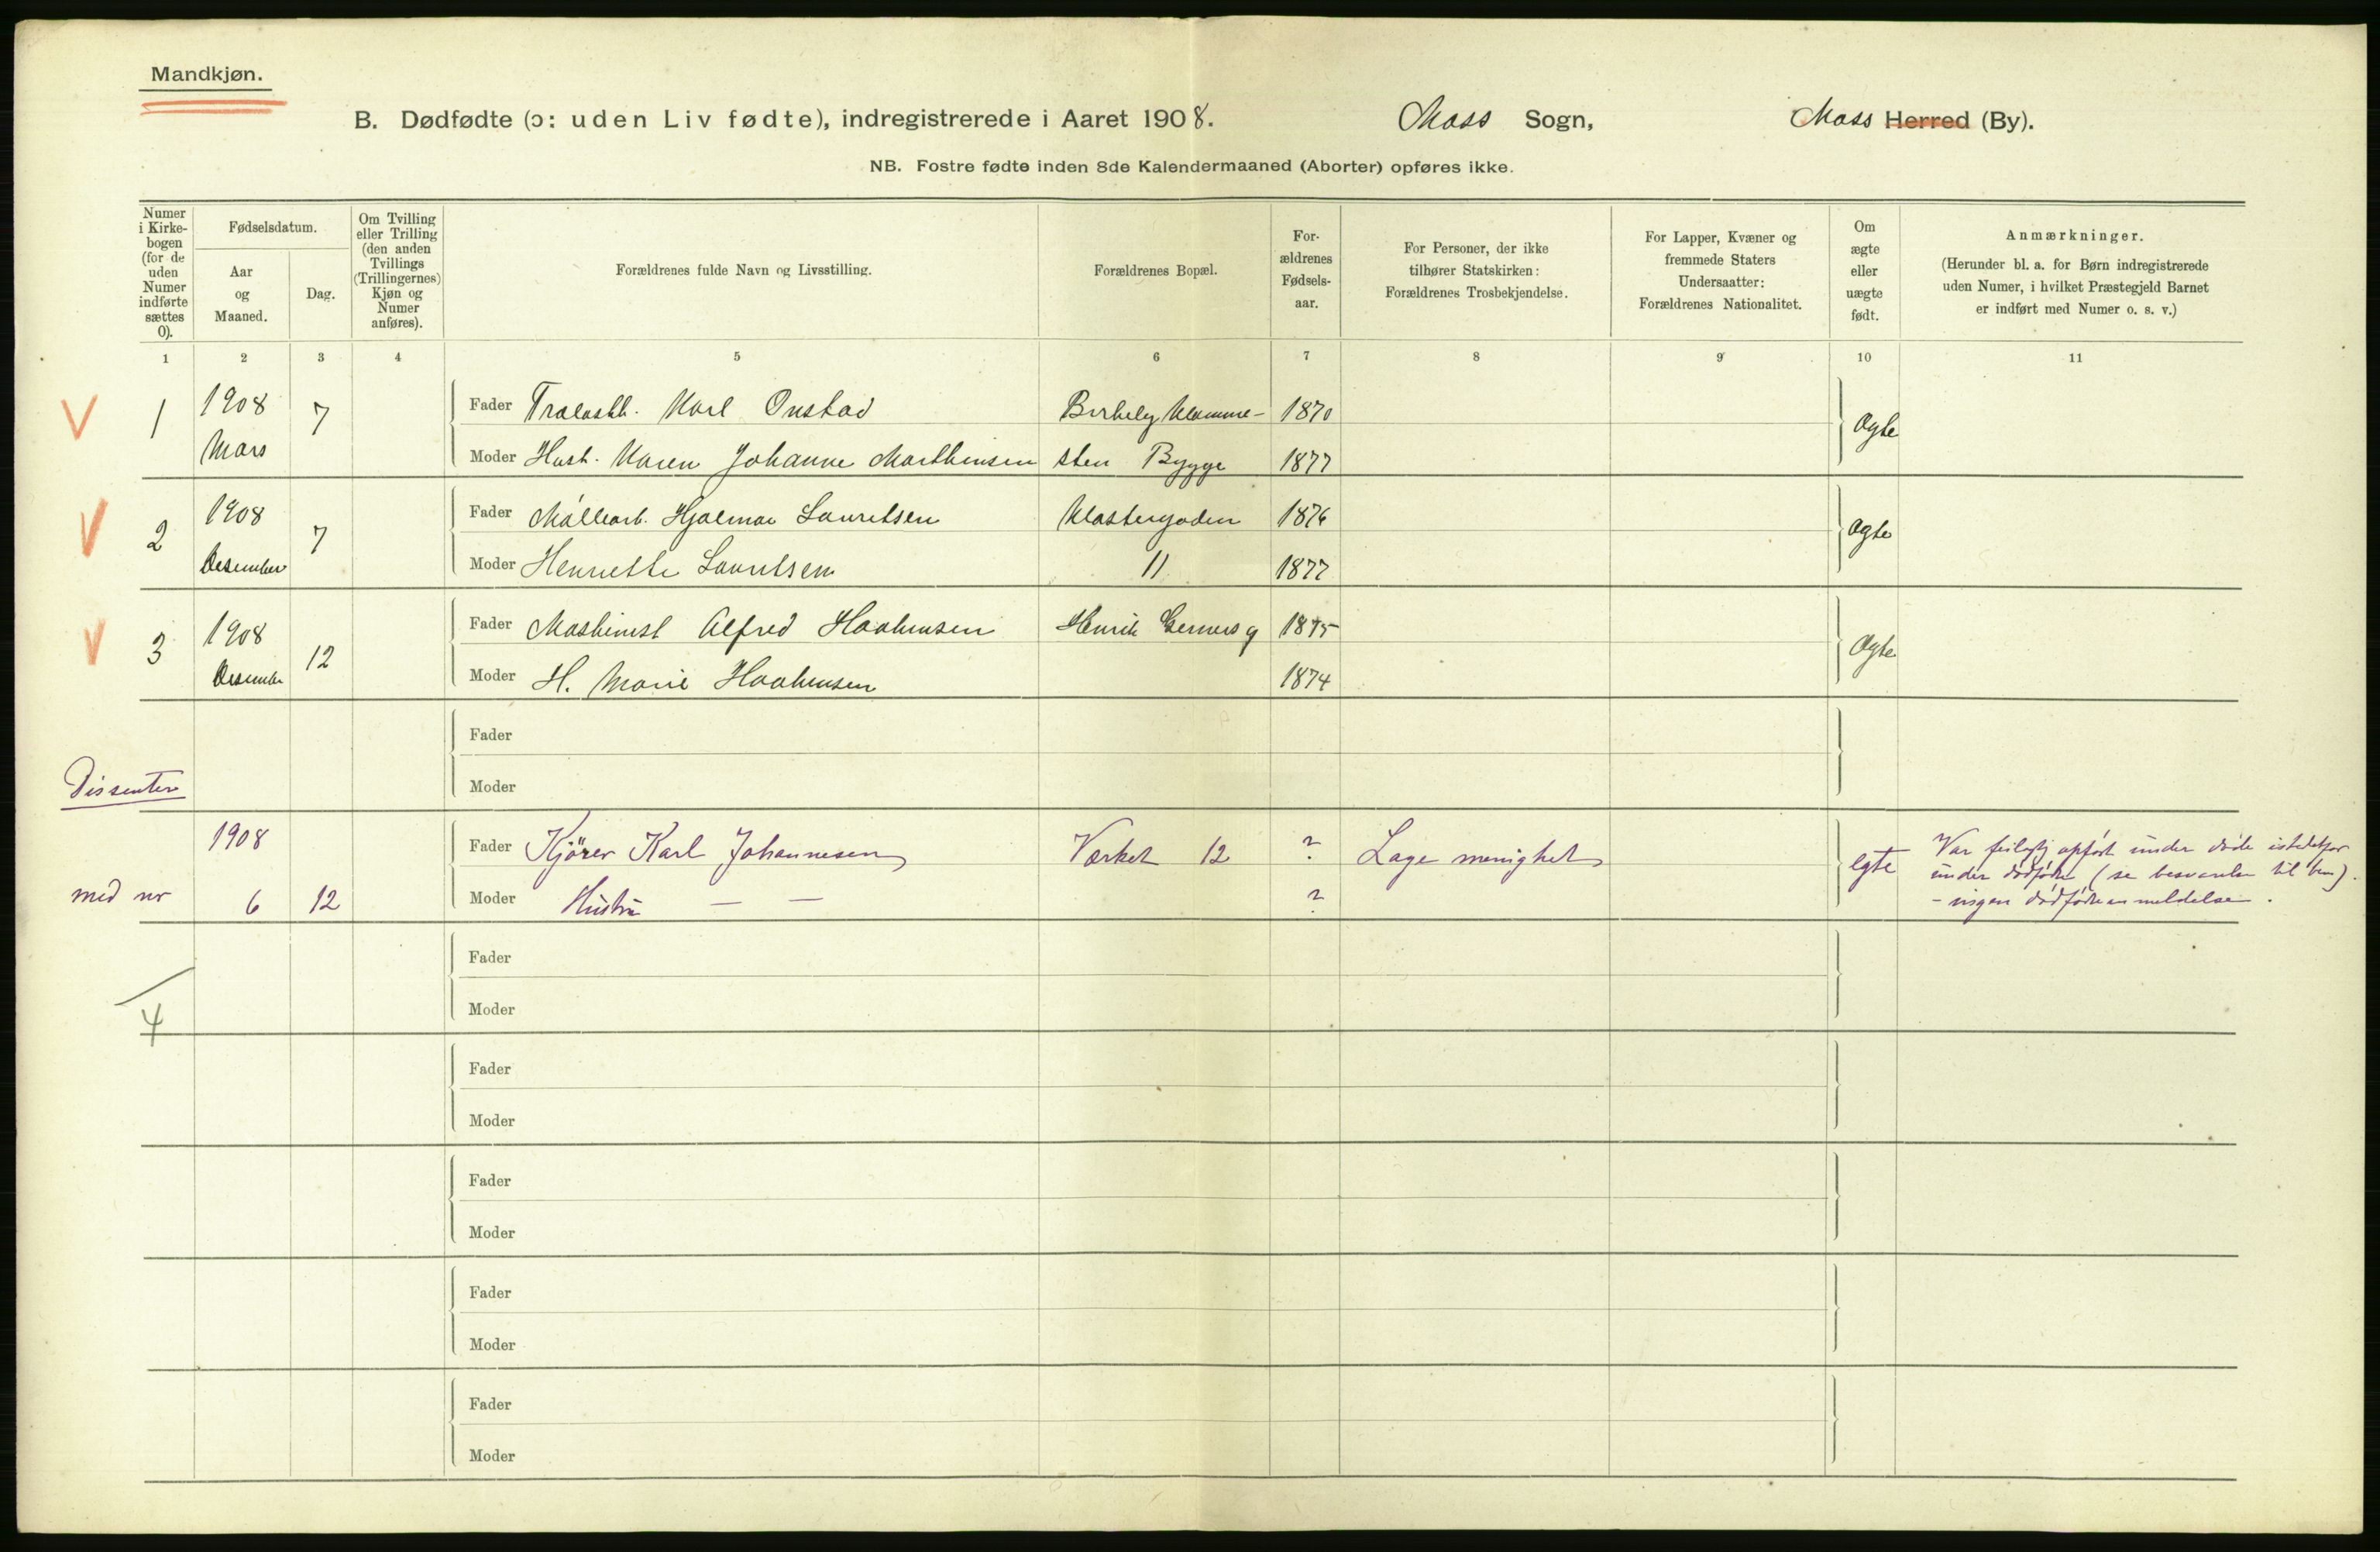 Mandkjøn.
B. Dødfødte (ɔ: uden Liv fødte), indregistrerede i Aaret 1908. Moss Sogn, Moss Herred (By).
NB. Fostre fødte inden 8de Kalendermaaned (Aborter) opføres ikke.
Numer i Kirke-bogen (for de uden Numer indførte sættes 0).
Fødselsdatum.
Aar og Maaned.
Dag.
Om Tvilling eller Trilling (den anden Tvillings (Trillingernes) Kjøn og Numer anføres).
Forældrenes fulde Navn og Livsstilling.
Forældrenes Bopæl.
For-ældrenes Fødsels-aar.
For Personer, der ikke tilhører Statskirken: Forældrenes Trosbekjendelse.
For Lapper, Kvæner og fremmede Staters Undersaatter: Forældrenes Nationalitet.
Om ægte eller uægte født.
Anmærkninger.
(Herunder bl. a. for Børn indregistrerede uden Numer, i hvilket Præstegjeld Barnet er indført med Numer o. s. v.)
1 2 3 4 5 6 7 8 9 10 11
V 1 1908 7 Fader Karl Onstad 1870 Ægte
Mars Moder Hust. Karen Johanne Marthinsen sten Bygge 1877
V 2 1908 7 Fader Møllearb. Hjalmar Lauritsen Klostergaden 1876 Ægte
Desember Moder Henriette Lauritsen 11 1877
V 3 1908 12 Fader Maskinist Alfred Haakensen Henrik Gerners g 1875 Ægte
Desember Moder H. Marie Haakensen 1874
Fader
Moder
Dissentere
1908 Fader Kjører Karl Johannesen Værket 12 ? Lage menighet egte Var feilagtig opført under døde istedetfor
under dødfødte (se besvarelse til brev).
med nr 6 12 Moder Hustru — — ? - ingen dødfødteanmeldelse.
Fader
4 Moder
Fader
Moder
Fader
Moder
Fader
Moder
Fader
Moder